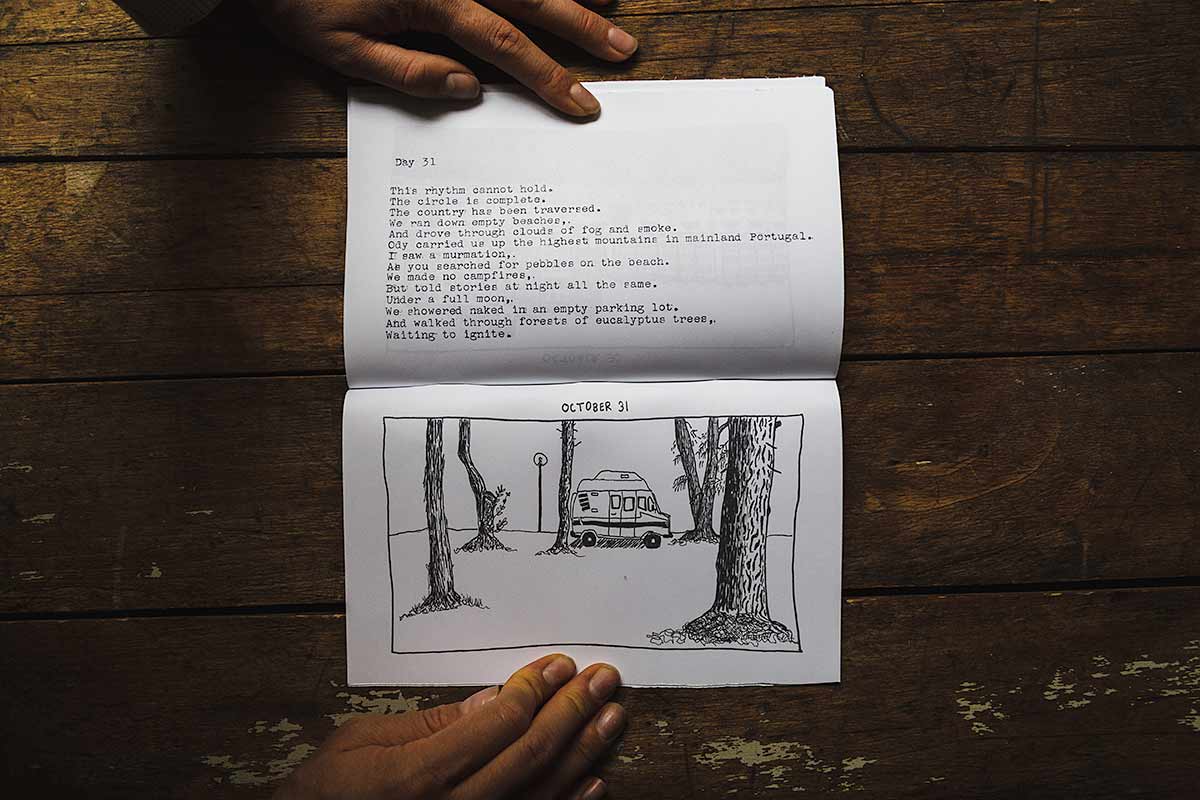 Day 31
This rhythm cannot hold.
The circle is complete.
The country has been traversed.
We ran down empty beaches,.
And drove through clouds of fog and smoke.
Ody carried us up the highest mountains in mainland Portugal.
I saw a murmation,.
As you searched for pebbles on the beach.
We made no campfires,.
But told stories at night all the same.
Under a full moon,.
We showered naked in an empty parking lot.
And walked through forests of eucalyptus trees,.
Waiting to ignite.
OCTOBER 31